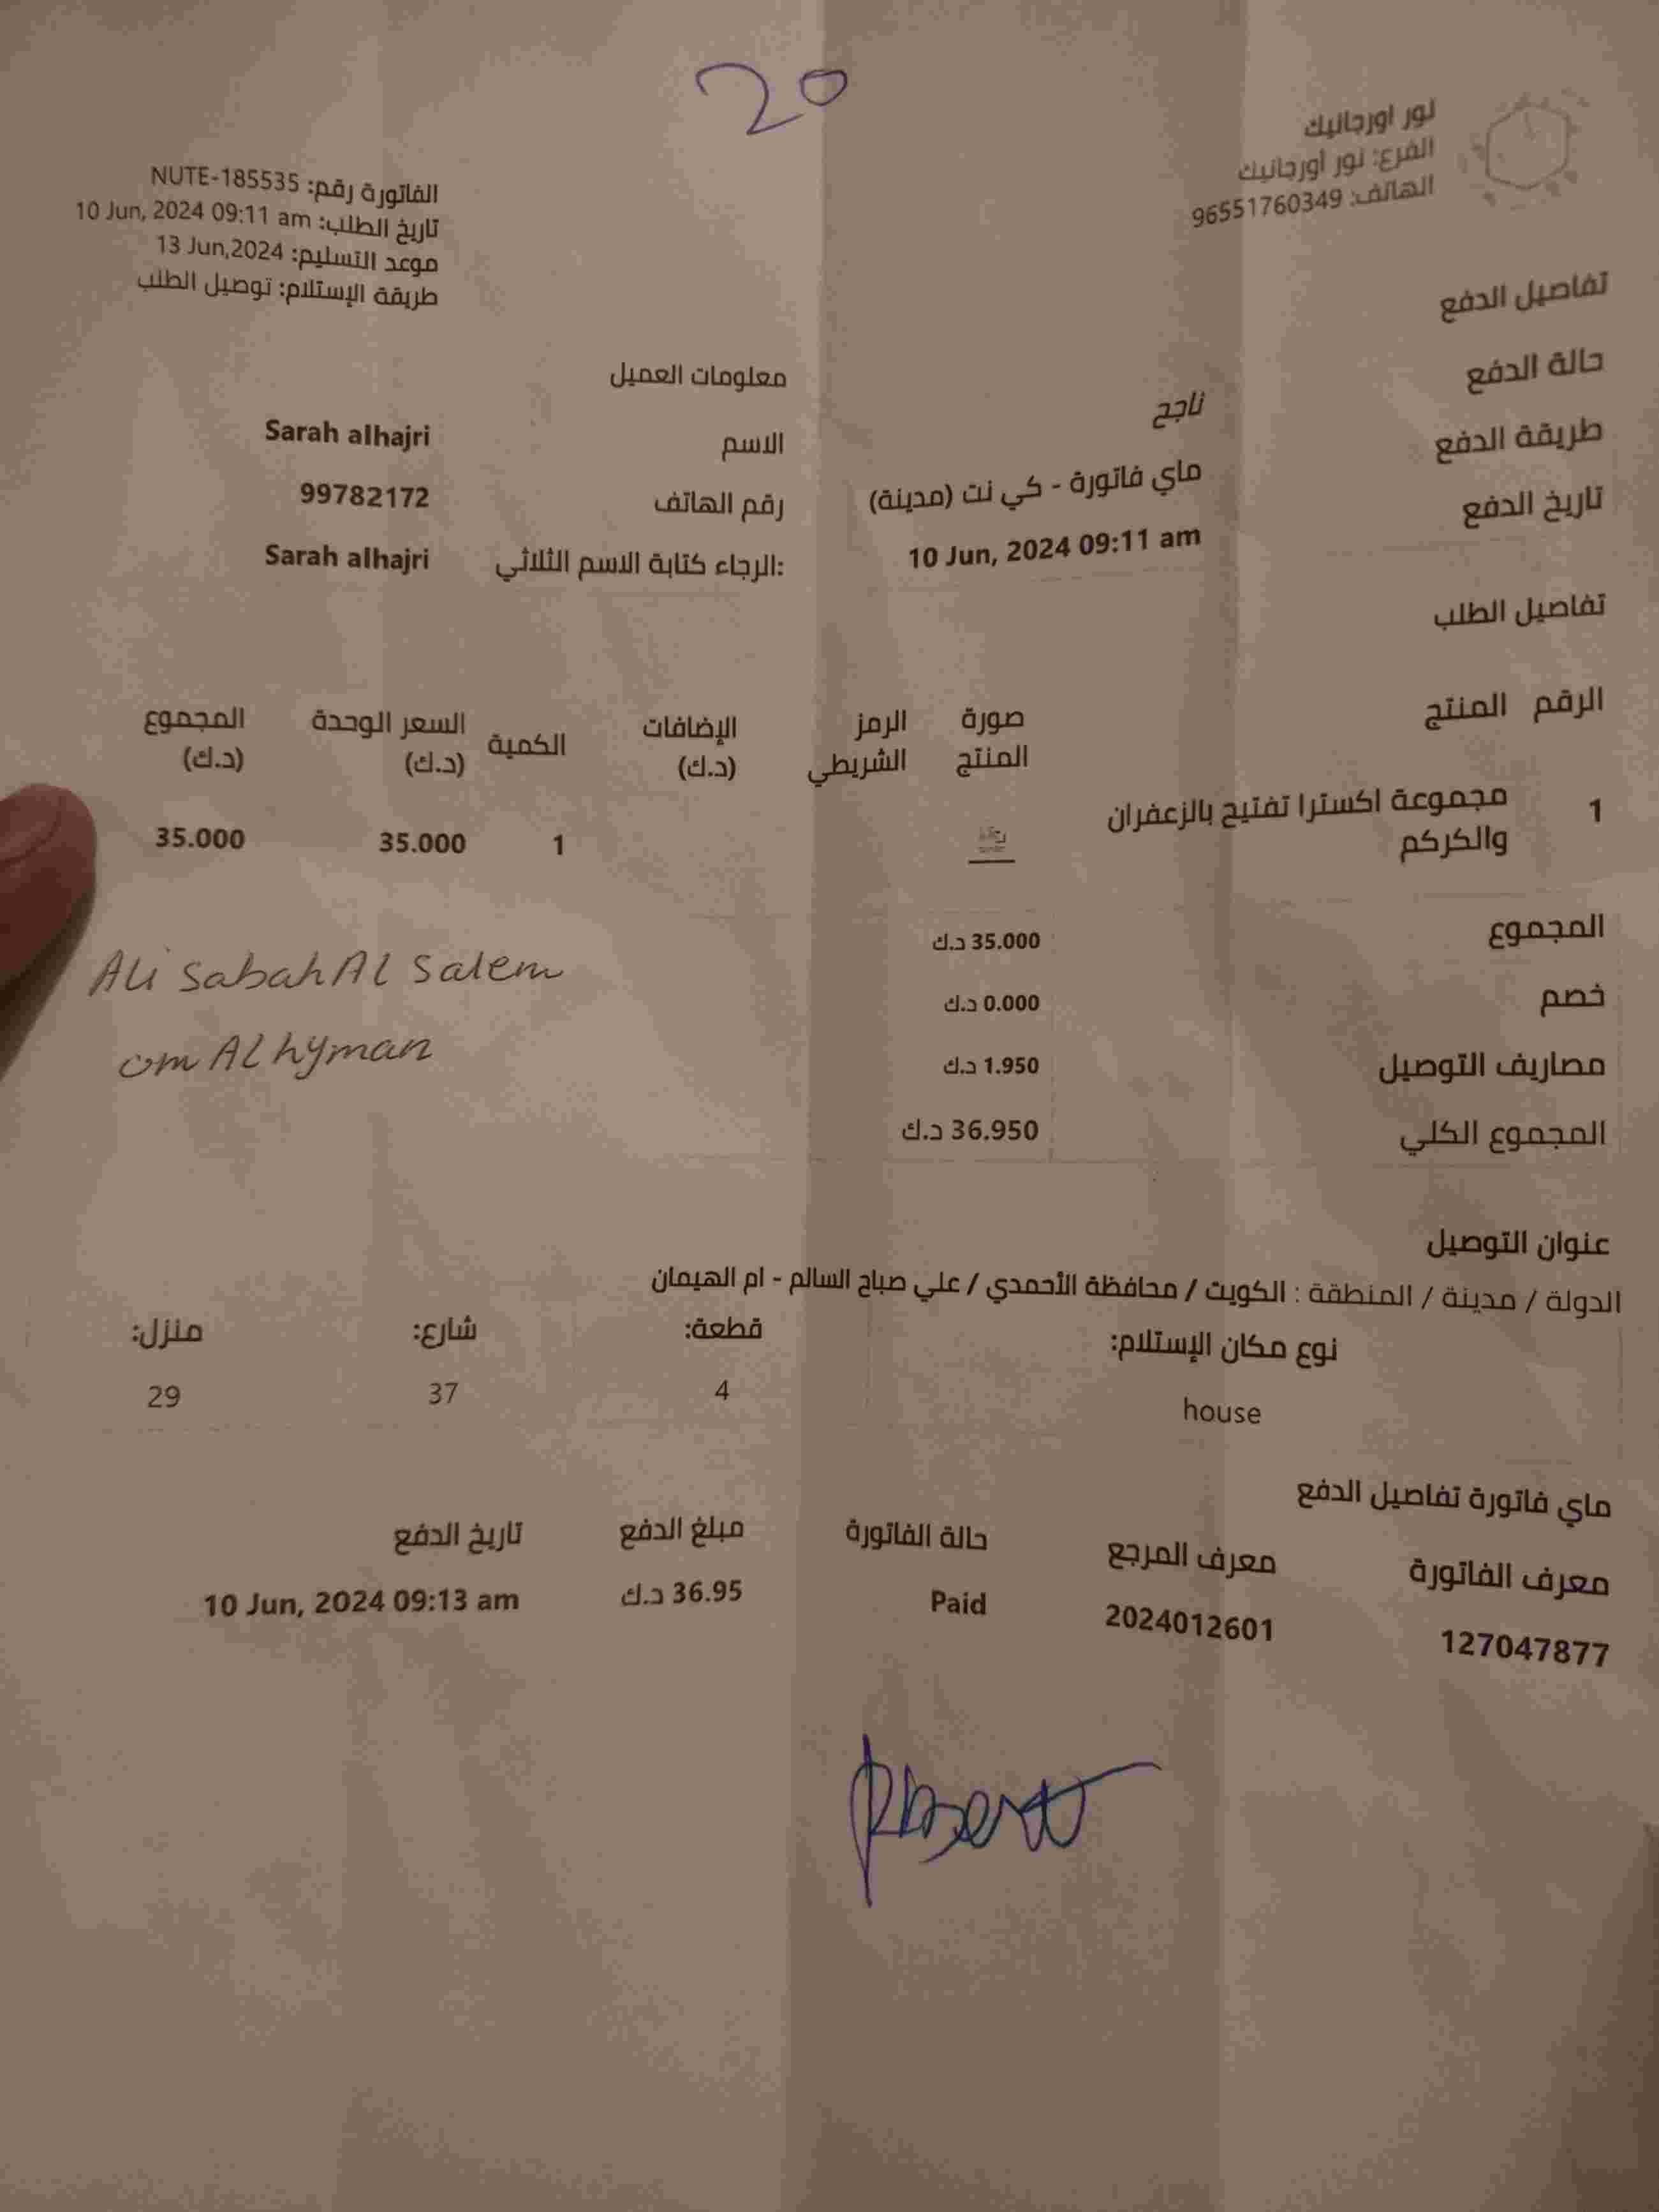 20
نور اورجانيك
الفرع: نور أورجانيك
الهاتف: 96551760349
الفاتورة رقم: NUTE-185535
تاريخ الطلب: 10 Jun, 2024 09:11 am
موعد التسليم: 13 Jun,2024
طريقة الإستلام: توصيل الطلب
تفاصيل الدفع
حالة الدفع ناجح
طريقة الدفع ماي فاتورة - كي نت (مدينة)
تاريخ الدفع 10 Jun, 2024 09:11 am
معلومات العميل
الاسم Sarah alhajri
رقم الهاتف 99782172
الرجاء كتابة الاسم الثلاثي: Sarah alhajri
تفاصيل الطلب
الرقم المنتج صورة المنتج الرمز الشريطي الإضافات (د.ك) الكمية السعر الوحدة (د.ك) المجموع (د.ك)
1 مجموعة اكسترا تفتيح بالزعفران 1 35.000 35.000
والكركم
المجموع 35.000 د.ك
خصم 0.000 د.ك
مصاريف التوصيل 1.950 د.ك
المجموع الكلي 36.950 د.ك
Ali Sabah Al Salem
om Al hyman
عنوان التوصيل
الدولة / مدينة / المنطقة : الكويت / محافظة الأحمدي / علي صباح السالم - ام الهيمان
نوع مكان الإستلام: قطعة: شارع: منزل:
house 4 37 29
ماي فاتورة تفاصيل الدفع
معرف الفاتورة معرف المرجع حالة الفاتورة مبلغ الدفع تاريخ الدفع
127047877 2024012601 Paid 36.95 د.ك 10 Jun, 2024 09:13 am